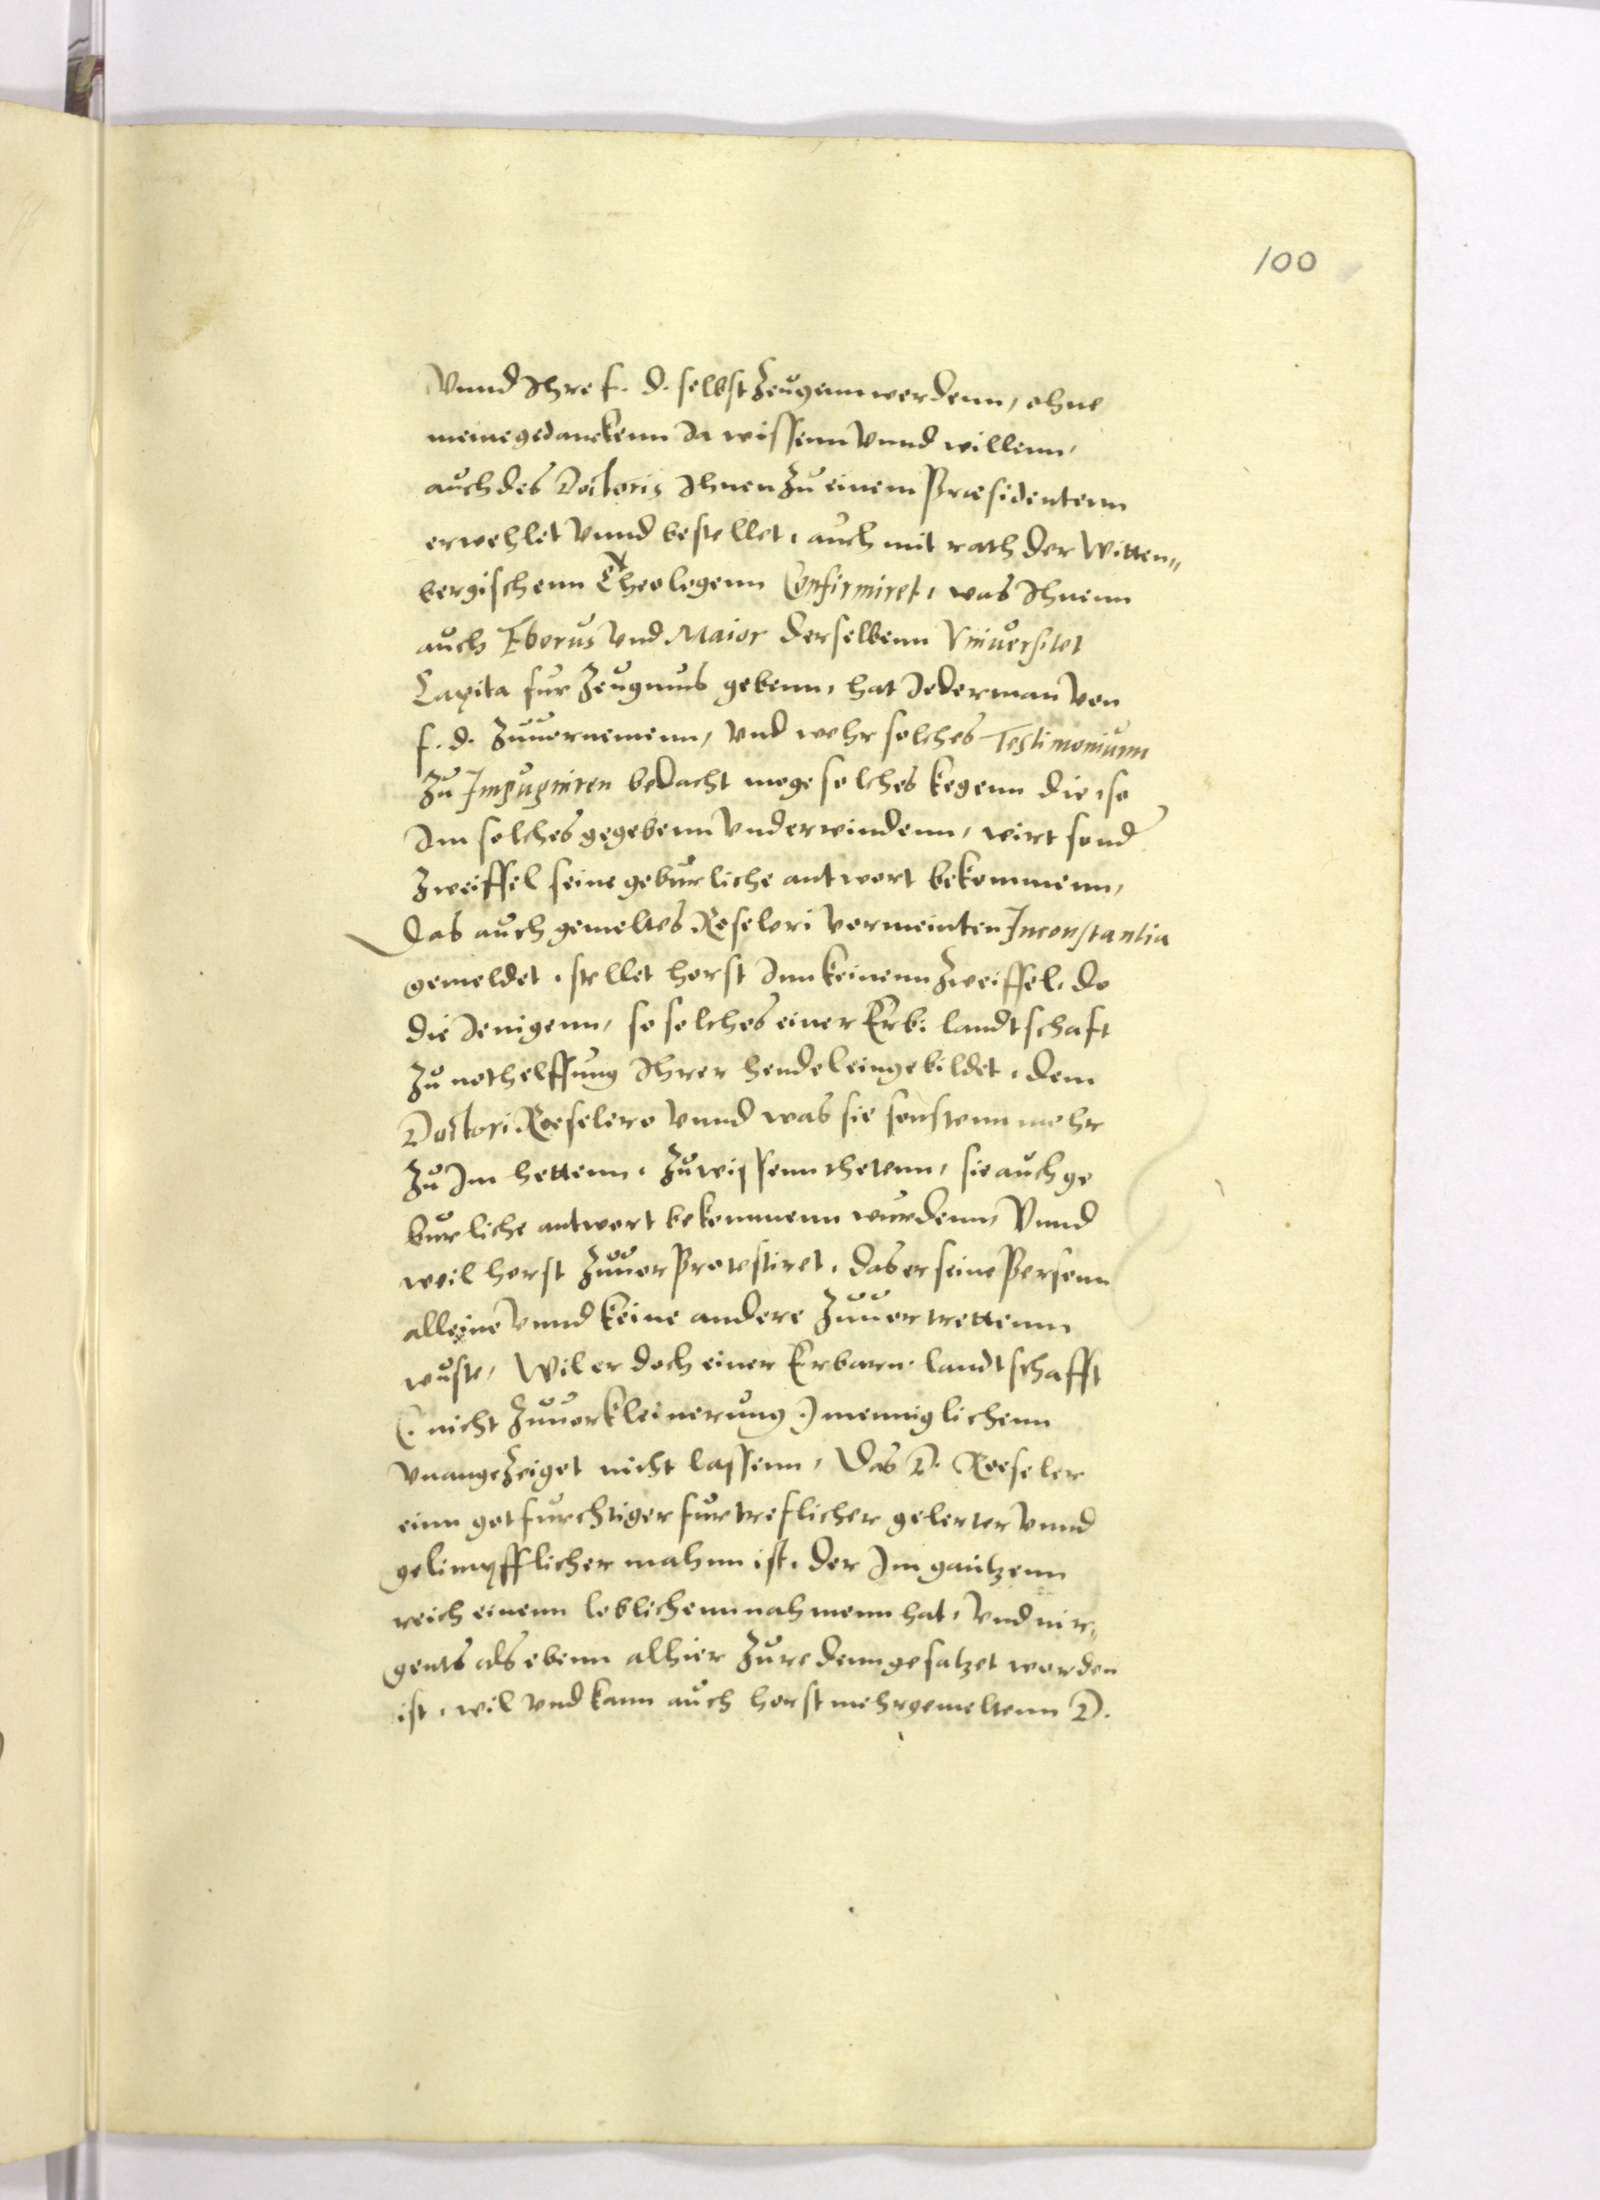 100
Vnnd Ihre f. d. selbst Zeugenn werdenn, ohne
meine gedanckenn Ia wissenn Vnnd willenn,
auch des Doctoris Ihnen Zu einem Præsidentenn
erwehlet Vnnd bestellet, auch mit rath der Witten„
bergischenn Theologenn Confirmiret, was Ihnenn
auch Eberus Vnd Maior derselbenn Vniuersitet
Capita fur Zeugnus gebenn, hat Iederman Von
f. d. Zuuornemenn, Vnd wehr solches Testimonium
Zu Impugniren bedacht moge solches kegenn die, so
Im solches gegebenn Vnderwindenn, wirt sond
Zweiffel seine geburliche antwort bekommenn,
Das auch gemeltes Roseleri vermeinten Inconstantia
gemeldet, stellet horst Inn keinenn Zweiffel, do
die Ienigenn, so solches einer Erb: landtschaft
Zu nothelffung Ihrer hendel eingebildet, dem
Doctori Roeselero Vnnd was sie sonstenn mehr
Zu Im hettenn, Zuwissenn thetenn, sie auch ge
burliche antwort bekommenn wurdenn, Vnnd
weil horst Zuuor Protestiret, das er seine Persenn
alleine Vnnd keine andere Zuuortrettenn
wuste, Wil er doch einer Erbarn landtschafft
(: nicht Zuuorkleinerung :) menniglichenn
Vnangezeiget nicht lassenn, Das D. Roeseler
einn gotfurchtiger furtreflicher gelerter Vnnd
gelimpfflicher mahnn ist, der Im gantzenn
reich einenn loblichenn nahmenn hat, Vnd nir„
gents als ebenn alhier Zureden gesatzet worden
ist, wil Vnd kann auch horst mehrgemeltenn D.